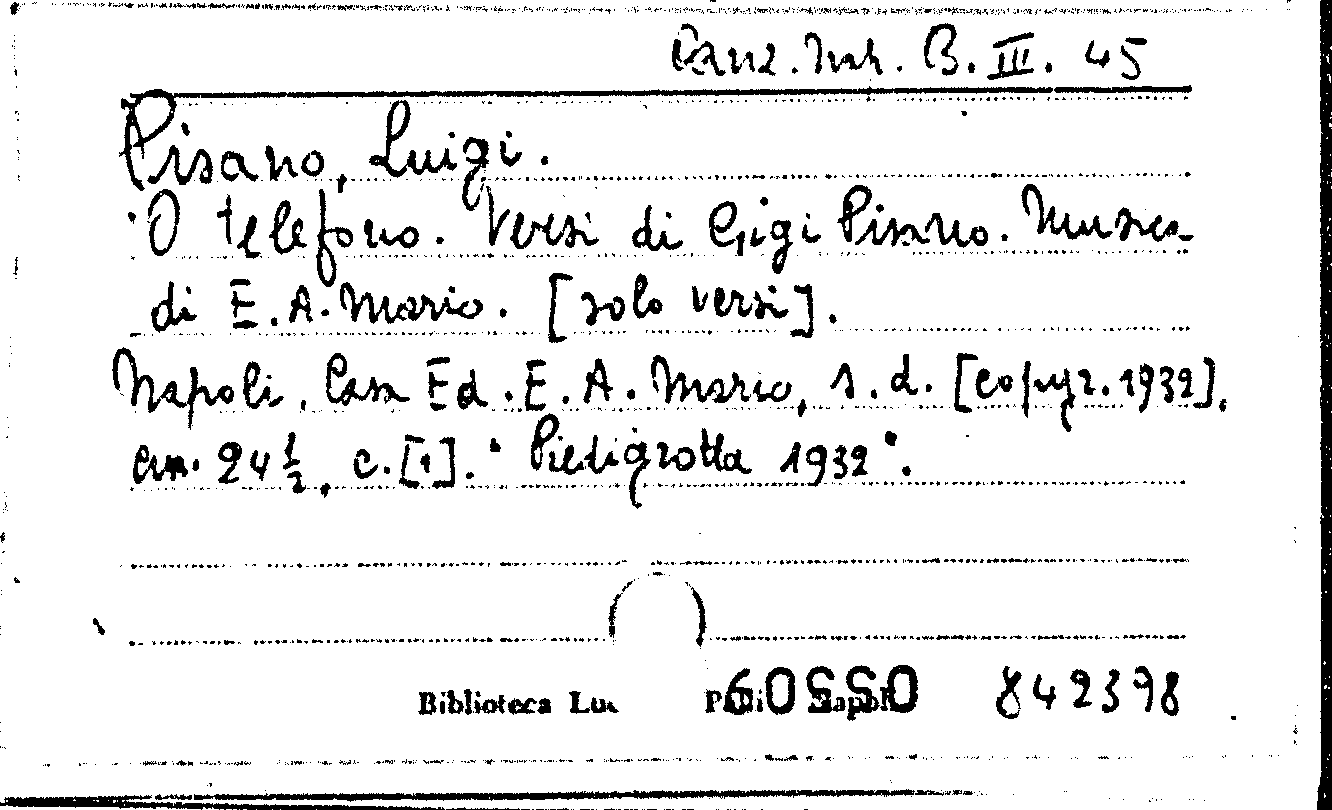 Canz. Nap. B. III. 45
Pisano, Luigi.
'O telefono. Versi di Gigi Pisano. Musica
di E. A. Mario. [solo versi].
Napoli, Casa Ed. E. A. Mario, s. d. [copyr. 1932],
cm. 24 ½, c. [1]. "Piedigrotta 1932".
Biblioteca Luc 842398